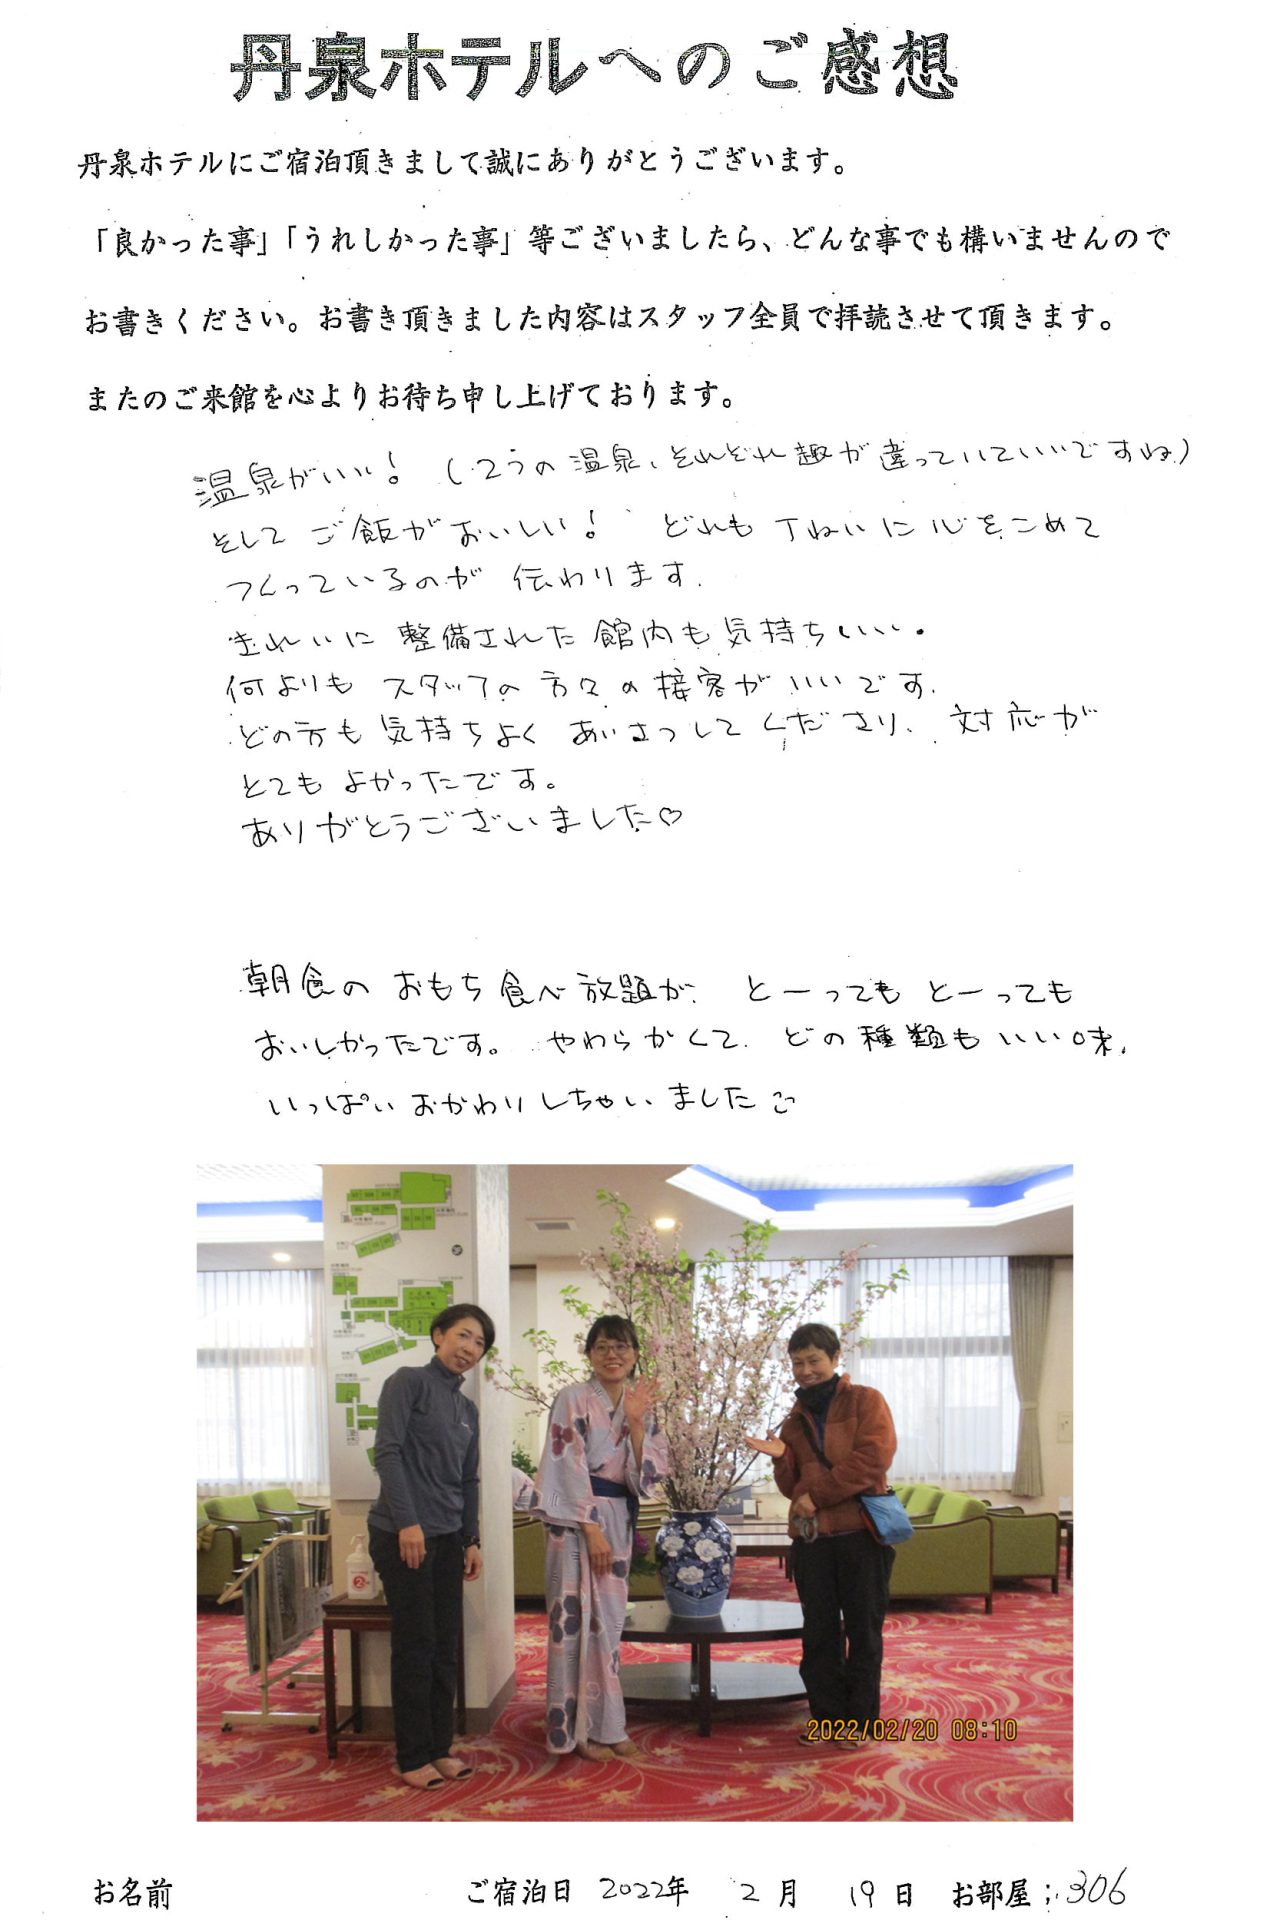 丹泉ホテルへのご感想
丹泉ホテルにご宿泊頂きまして誠にありがとうございます。
「良かった事」「うれしかった事」等ございましたら、どんな事でも構いませんので
お書きください。お書き頂きました内容はスタッフ全員で拝読させて頂きます。
またのご来館を心よりお待ち申し上げております。
温泉がいい! (2つの温泉、それぞれ趣が違っていていいですね)
そして ご飯がおいしい! どれも丁ねいに心をこめて
つくっているのが 伝わります.
きれいに 整備された 館内も気持ちいい.
何よりも スタッフの方々の接客がいいです.
どの方も気持ちよく あいさつしてくださり、対応が
とてもよかったです。
ありがとうございました♡
朝食の おもち食べ放題が、 とーっても とーっても
おいしかったです。 やわらかくて、どの種類もいい味、
いっぱいおかわりしちゃいました
2022/02/20 08:10
お名前 ご宿泊日 2022年 2月 19日 お部屋; 306